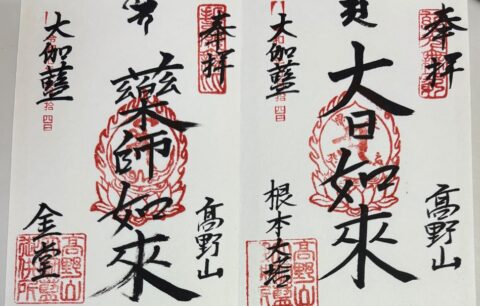 奉拝
高野山
大日如來
大伽藍
根本大塔
奉拝
高野山
藥師如來
大伽藍
金堂